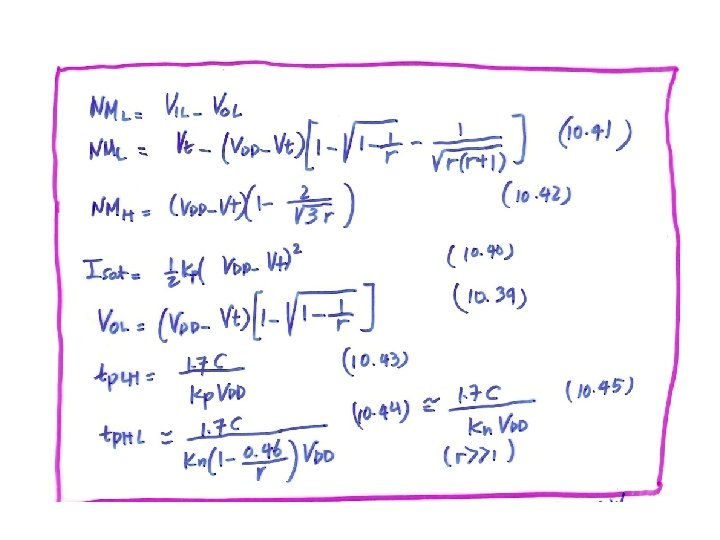 NML = VIL - VOL
NML = Vt - (VDD - Vt)[1 - √(1 - 1/r) - 1/√(r(r+1))] (10.41)
NMH = (VDD - Vt)(1 - 2/√3r) (10.42)
Isat = 1/2 kp(VDD - Vt)² (10.40)
VOL = (VDD - Vt)[1 - √(1 - 1/r)] (10.39)
tpLH = 1.7C/KpVDD (10.43)
tpHL ≃ 1.7C/Kn(1 - 0.46/r)VDD (10.44) ≃ 1.7C/Kn VDD (10.45)
(r>>1)